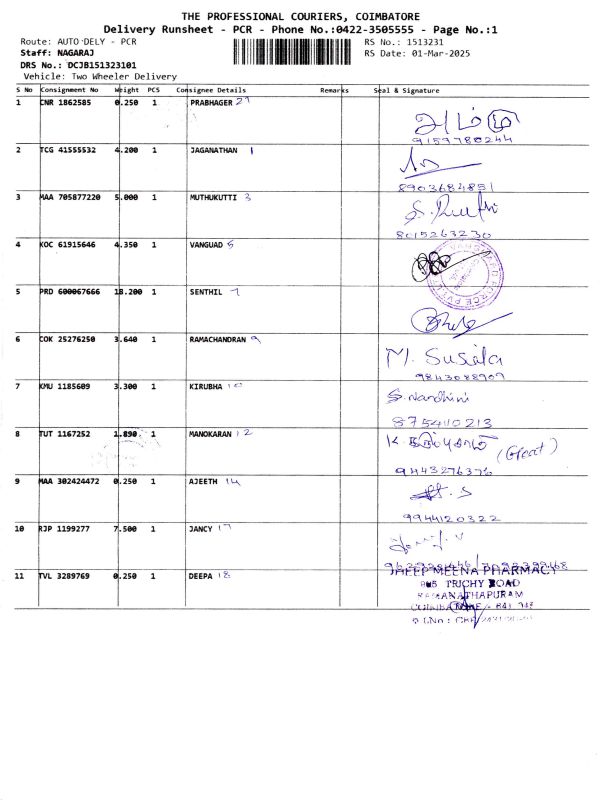 THE PROFESSIONAL COURIERS, COIMBATORE
Delivery Runsheet - PCR - Phone No.:0422-3505555 - Page No.:1
Route: AUTO DELY - PCR
RS No.: 1513231
Staff: NAGARAJ
RS Date: 01-Mar-2025
DRS No.: DCJB151323101
Vehicle: Two Wheeler Delivery
S No Consignment No Weight PCS Consignee Details Remarks Seal & Signature
1 CNR 1862585 0.250 1 PRABHAGER 21
9159780244
2 TCG 41555532 4.200 1 JAGANATHAN 1
8903684851
3 MAA 705877220 5.000 1 MUTHUKUTTI 3
8015263230
4 KOC 61915646 4.350 1 VANGUAD 5
5 PRD 600067666 18.200 1 SENTHIL 7
6 COK 25276250 3.640 1 RAMACHANDRAN 9
M. Susila
9843088909
7 KMU 1185609 3.300 1 KIRUBHA 10
S. Nandhini
875440213
8 TUT 1167252 1.890 1 MANOKARAN 12
9443276376
9 MAA 302424472 0.250 1 AJEETH 14
9944120322
10 RJP 1199277 7.500 1 JANCY 17
11 TVL 3289769 0.250 1 DEEPA 18
MEENA PHARMACY
TRICHY ROAD
RAMANATHAPURAM